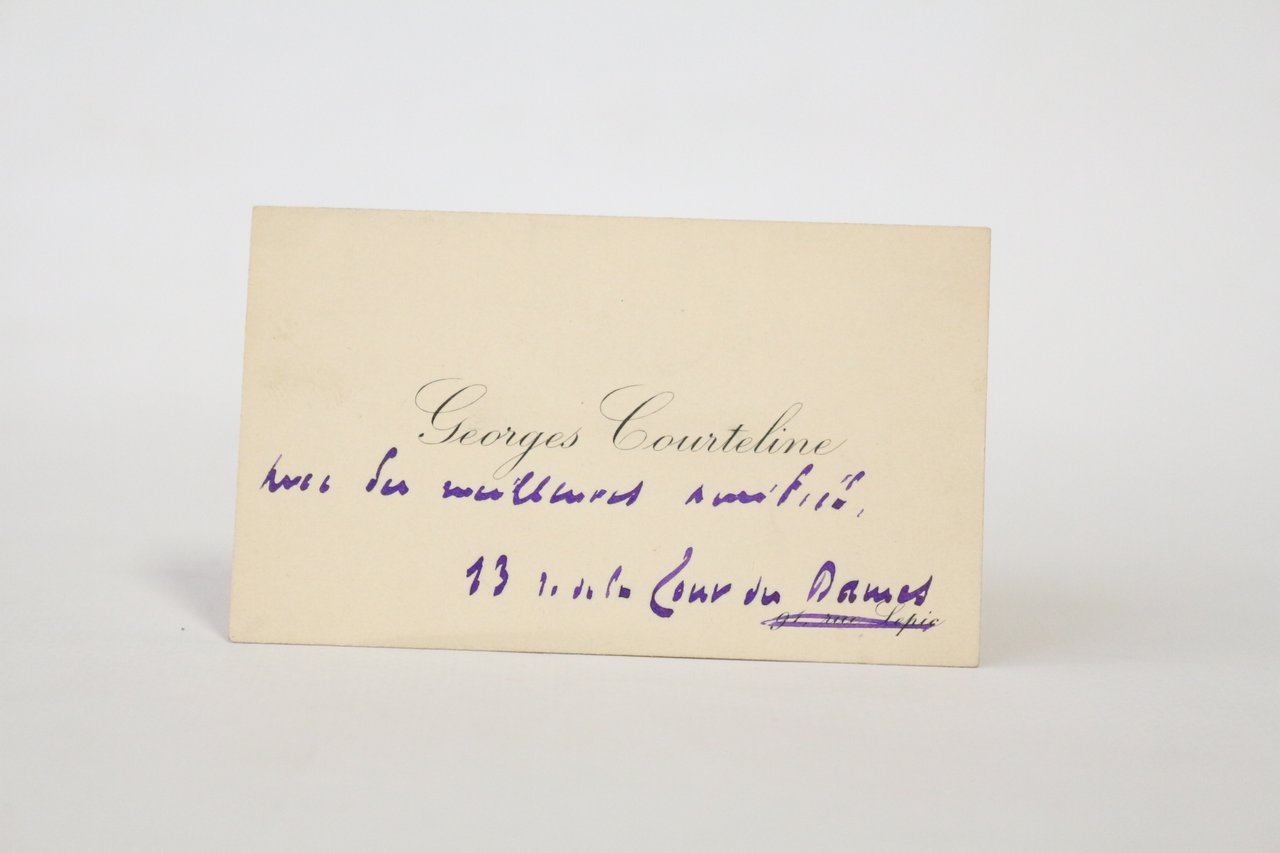 Georges Courteline
avec ses meilleures amitiés,
13 r. de la Tour des Dames
rue Lepic